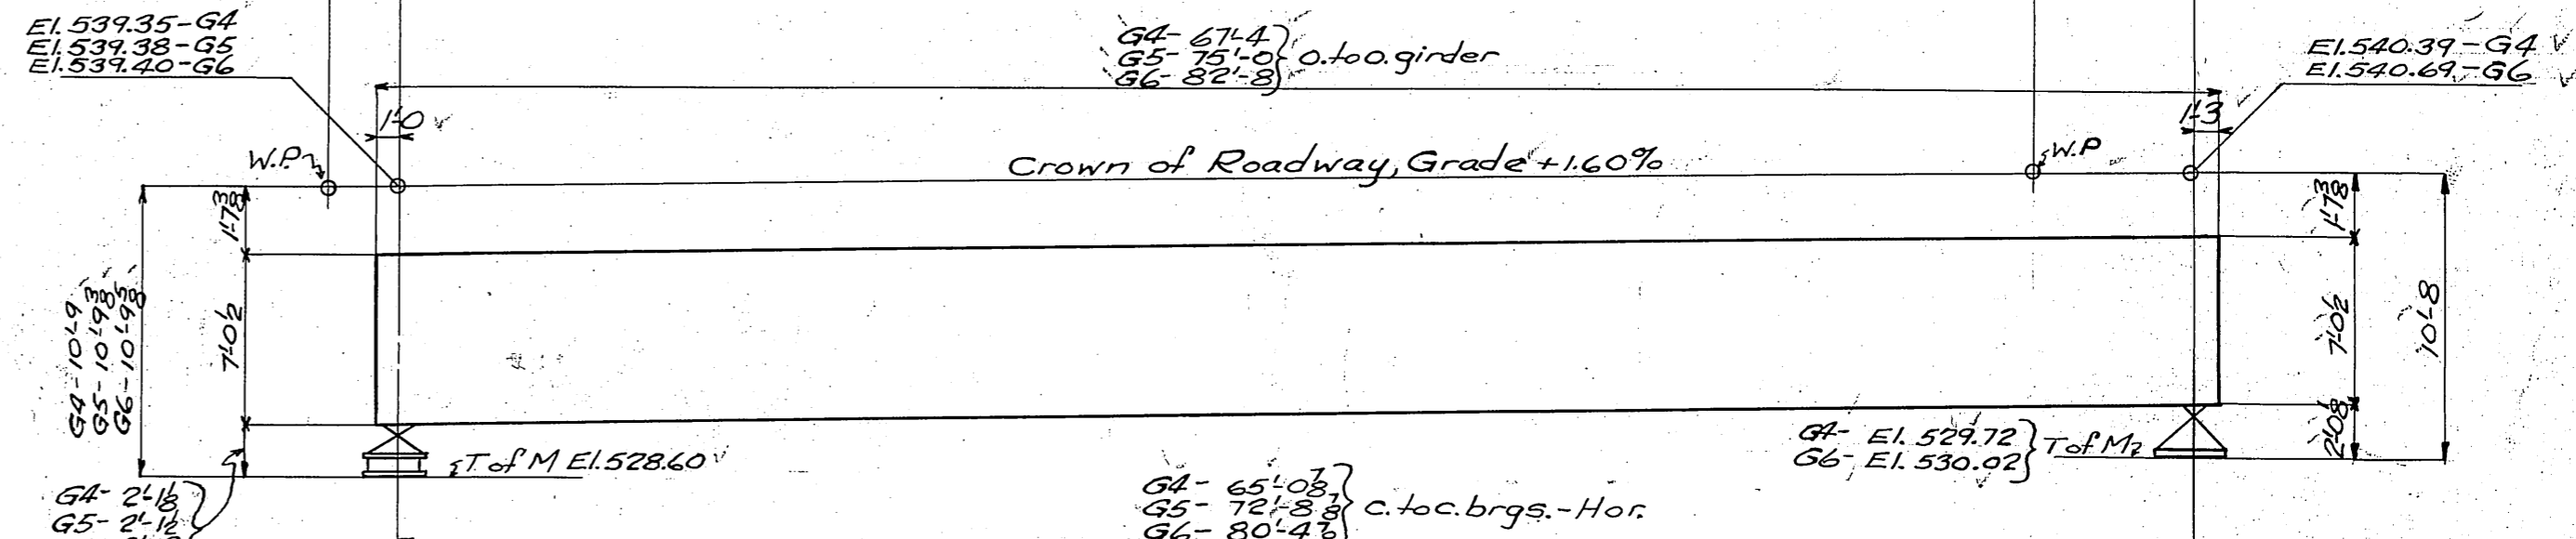 El. 539.35-G4
El. 539.38-G5
El. 539.40-G6
G4- 67'-4
G5- 75'-0
G6- 82'-8
O. to O. girder
El. 540.39-G4
El. 540.69-G6
1'-0
1'-3
W.P.
Crown of Roadway, Grade +1.60%
W.P
1'-7 3/8
1'-7 3/8
G4-10'-9
G5-10'-9 3/8
G6-10'-9 5/8
7'-0 1/2
7'-0 1/2
10'-8
2'-0 1/8
T of M El. 528.60
G4- El. 529.72
G6- El. 530.02
T of M
G4- 2'-1 1/8
G5- 2'-1 1/2
G4- 65'-0 7/8
G5- 72'-8 7/8
G6- 80'-4 7/8
C. to c. brgs.-Hor.